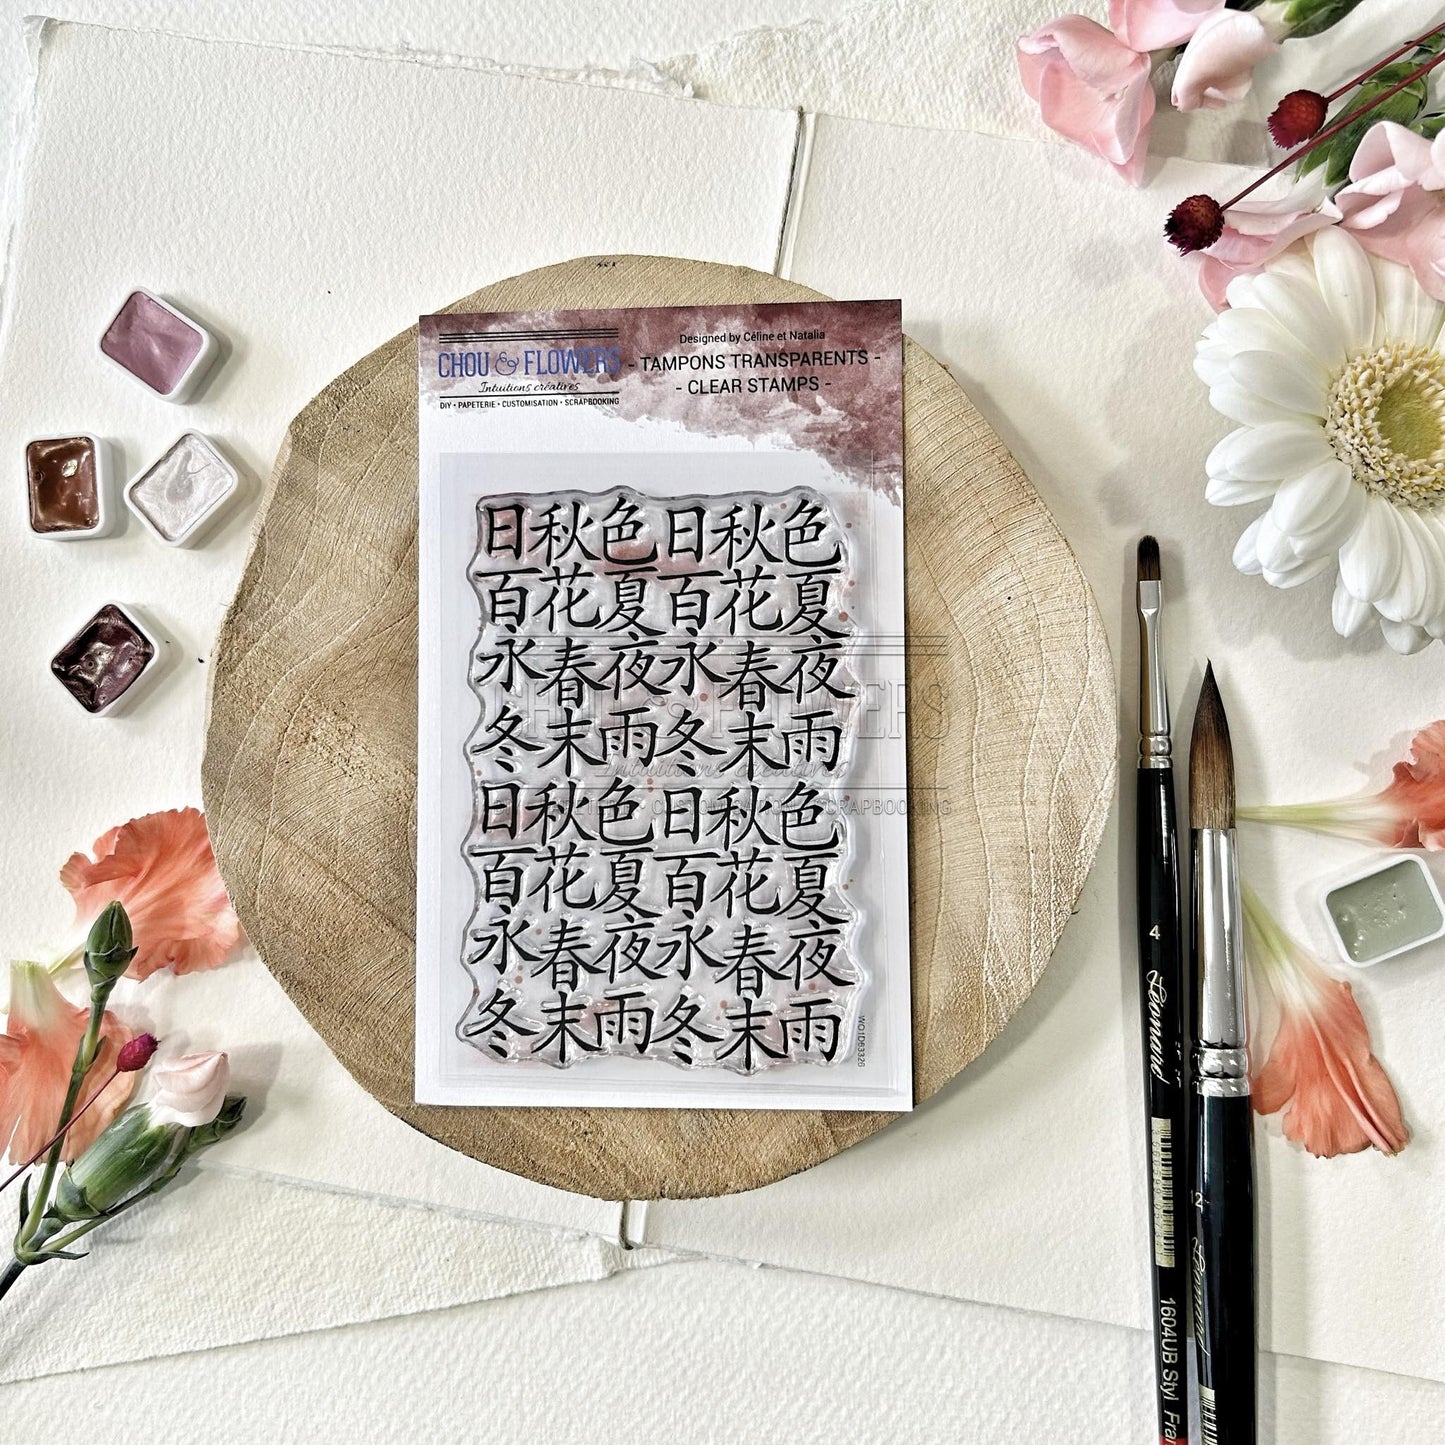 Designed by Céline et Natalia
CHOU & FLOWERS
Intuitions créatives
DIY • PAPETERIE • CUSTOMISATION • SCRAPBOOKING
- TAMPONS TRANSPARENTS -
- CLEAR STAMPS -
日秋色日秋色
百花夏百花夏
永春夜永春夜
冬末雨冬末雨
日秋色日秋色
百花夏百花夏
永春夜永春夜
冬末雨冬末雨
WO1D63326
CHOU & FLOWERS
Intuitions créatives
DIY • PAPETERIE • CUSTOMISATION • SCRAPBOOKING
4 Leonard
1604UB Styl Fran
12 Leonard